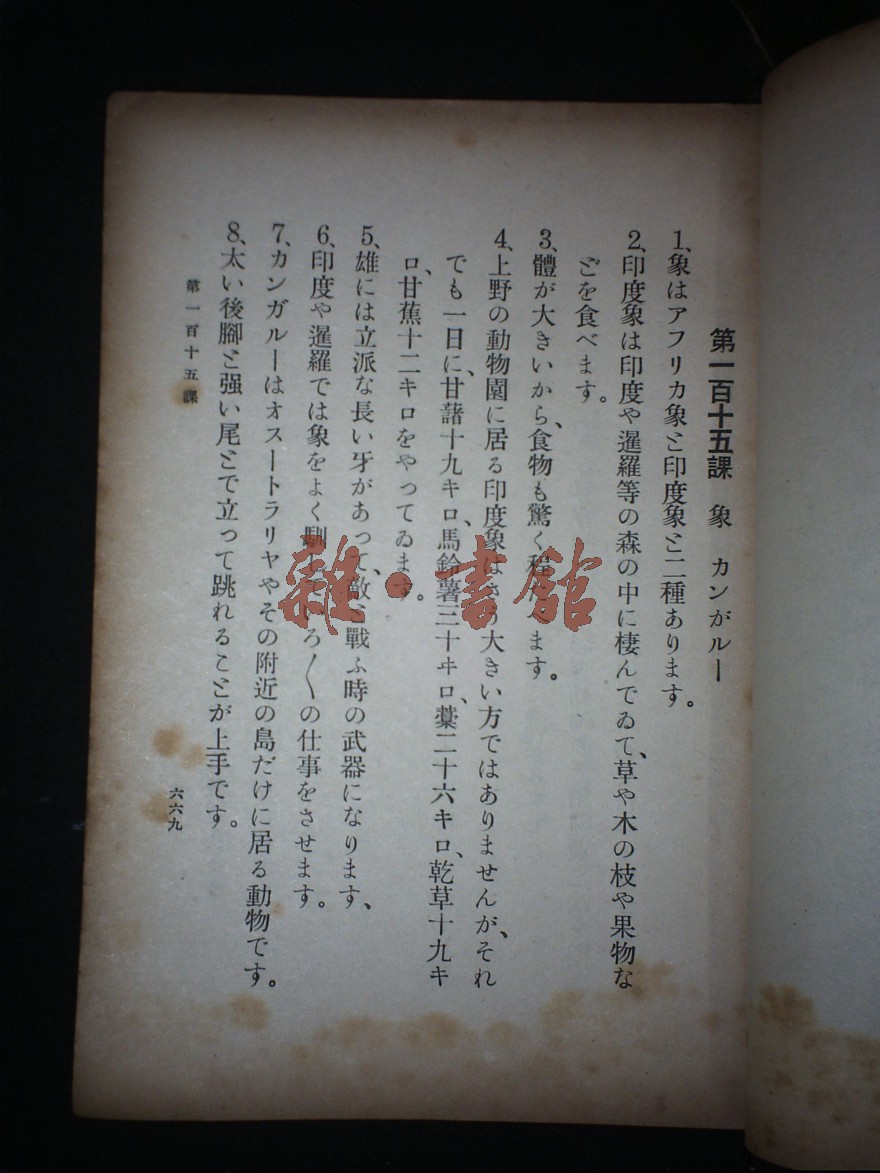 第一百十五課　象　カンガルー
1、象はアフリカ象と印度象と二種あります。
2、印度象は印度や暹羅等の森の中に棲んでゐて、草や木の枝や果物な
どを食べます。
3、體が大きいから、食物も驚く程たべます。
4、上野の動物園に居る印度象はさう大きい方ではありませんが、それ
でも一日に、甘諸十九キロ、馬鈴薯三十キロ、藁二十六キロ、乾草十九キ
ロ、甘蕉十二キロをやってゐます。
5、雄には立派な長い牙があって、敵と戰ふ時の武器になります、
6、印度や暹羅では象をよく馴していろ〳〵の仕事をさせます。
7、カンガルーはオストーラリヤやその附近の島だけに居る動物です。
8、太い後脚と强い尾とで立って跳れることが上手です。
第一百十五課
六六九
雜・書館